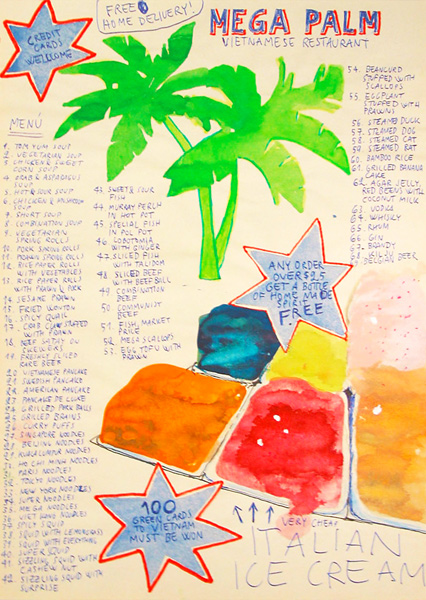 FREE
HOME DELIVERY!
MEGA PALM
VIETNAMESE RESTAURANT
CREDIT
CARDS
WELCOME
MENÚ
1. TOM YUM SOUP
2. VEGETARIAN SOUP
3. CHICKEN & SWEET
CORN SOUP
4. CRAB & ASPARAGUS
SOUP
5. HOT & SOUR SOUP
6. CHICKEN & MUSHROOM
SOUP
7. SHORT SOUP
8. COMBINATION SOUP
9. VEGETARIAN
SPRING ROLLS
10. PORK SPRING ROLLS
11. PRAWN SPRING ROLLS
12. RICE PAPER ROLLS
WITH VEGETABLES
13. RICE PAPER ROLLS
WITH PRAWN & PORK
14. SESAME PRAWN
15. FRIED WONTON
16. SPICY QUAIL
17. CRAB CLAW STUFFED
WITH PRAWN
18. BEEF SATAY ON
SKEWERS
19. FRESHLY SLICED
RARE BEEF
20. VIETNAMESE PANCAKE
21. SWEDISH PANCAKE
22. AMERICAN PANCAKE
23. PANCAKE DE LUXE
24. GRILLED PORK BALLS
25. GRILLED BRAINS
26. CURRY PUFFS
27. SINGAPORE NOODLES
28. BEIJING NOODLES
29. KUALA LUMPUR NOODLES
30. HO CHI MINH NOODLES
31. PARIS NOODLES
32. TOKYO NOODLES
33. NEW YORK NOODLES
34. SUPER NOODLES
35. MEGA NOODLES
36. HOT DANG NOODLES
37. SPICY SQUID
38. SQUID WITH LEMONGRASS
39. SQUID WITH EVERYTHING
40. SUPER SQUID
41. SIZZLING SQUID WITH
CASHEW NUTS
42. SIZZLING SQUID WITH
SURPRISE
43. SWEET & SOUR
FISH
44. MURRAY PERCH
IN HOT POT
45. SPECIAL FISH
IN POL POT
46. LOBOTOMIA
WITH GINGER
47. SLICED FISH
WITH
48. SLICED BEEF
WITH BEEF
49. COMBINATION
BEEF
50. COMMUNIST
BEEF
51. FISH, MARKET
PRICE
52. MEGA SCALLOPS
53. EGG TOFU WITH
PRAWN
54. BEANCURD
STUFFED WITH
SCALLOPS
55. EGGPLANT
STUFFED WITH
PRAWNS
56. STEAMED DUCK
57. STEAMED DOG
58. STEAMED CAT
59. STEAMED RAT
60. BAMBOO RICE
61. GRILLED BANANA
CAKE
62. AGAR JELLY,
RED BEENS WITH
COCONUT MILK
63. VODKA
64. WHISKY
65. RHUM
66. GIN
67. BRANDY
68. BEER
69. BELGIAN BEER
ANY ORDER
OVER $25
GET A BOTTLE
OF HOME MADE
SPIRIT
FREE
100
GREEN CARDS
TO VIETNAM
MUST BE WON
VERY CHEAP
ITALIAN
ICE CREAM